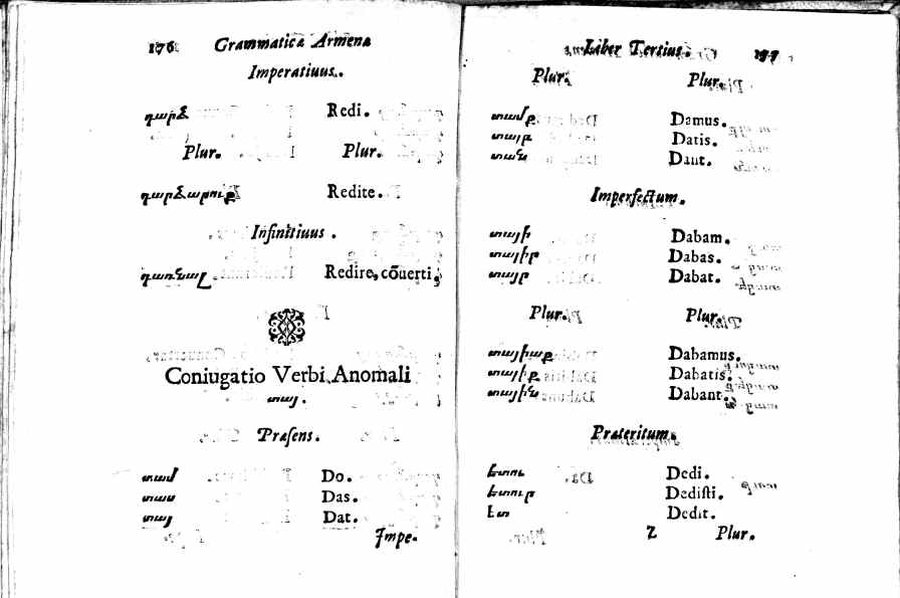 176 Grammaticæ Armenæ
Imperatiuus.
դարձ Redi.
Plur. Plur.
դարձարուք Redite.
Infinitiuus.
դառնալ Redire, cōuerti,
Coniugatio Verbi Anomali
տալ.
Præsens.
տամ Do.
տաս Das.
տայ Dat.
Impe-
Liber Tertius. 177
Plur. Plur.
տամք Damus.
տայք Datis.
տան Dant.
Imperfectum.
տայի Dabam.
տայիր Dabas.
տայր Dabat.
Plur. Plur.
տայիաք Dabamus.
տայիք Dabatis.
տային Dabant.
Præteritum.
ետու Dedi.
ետուր Dedisti.
ետ Dedit.
Z Plur.